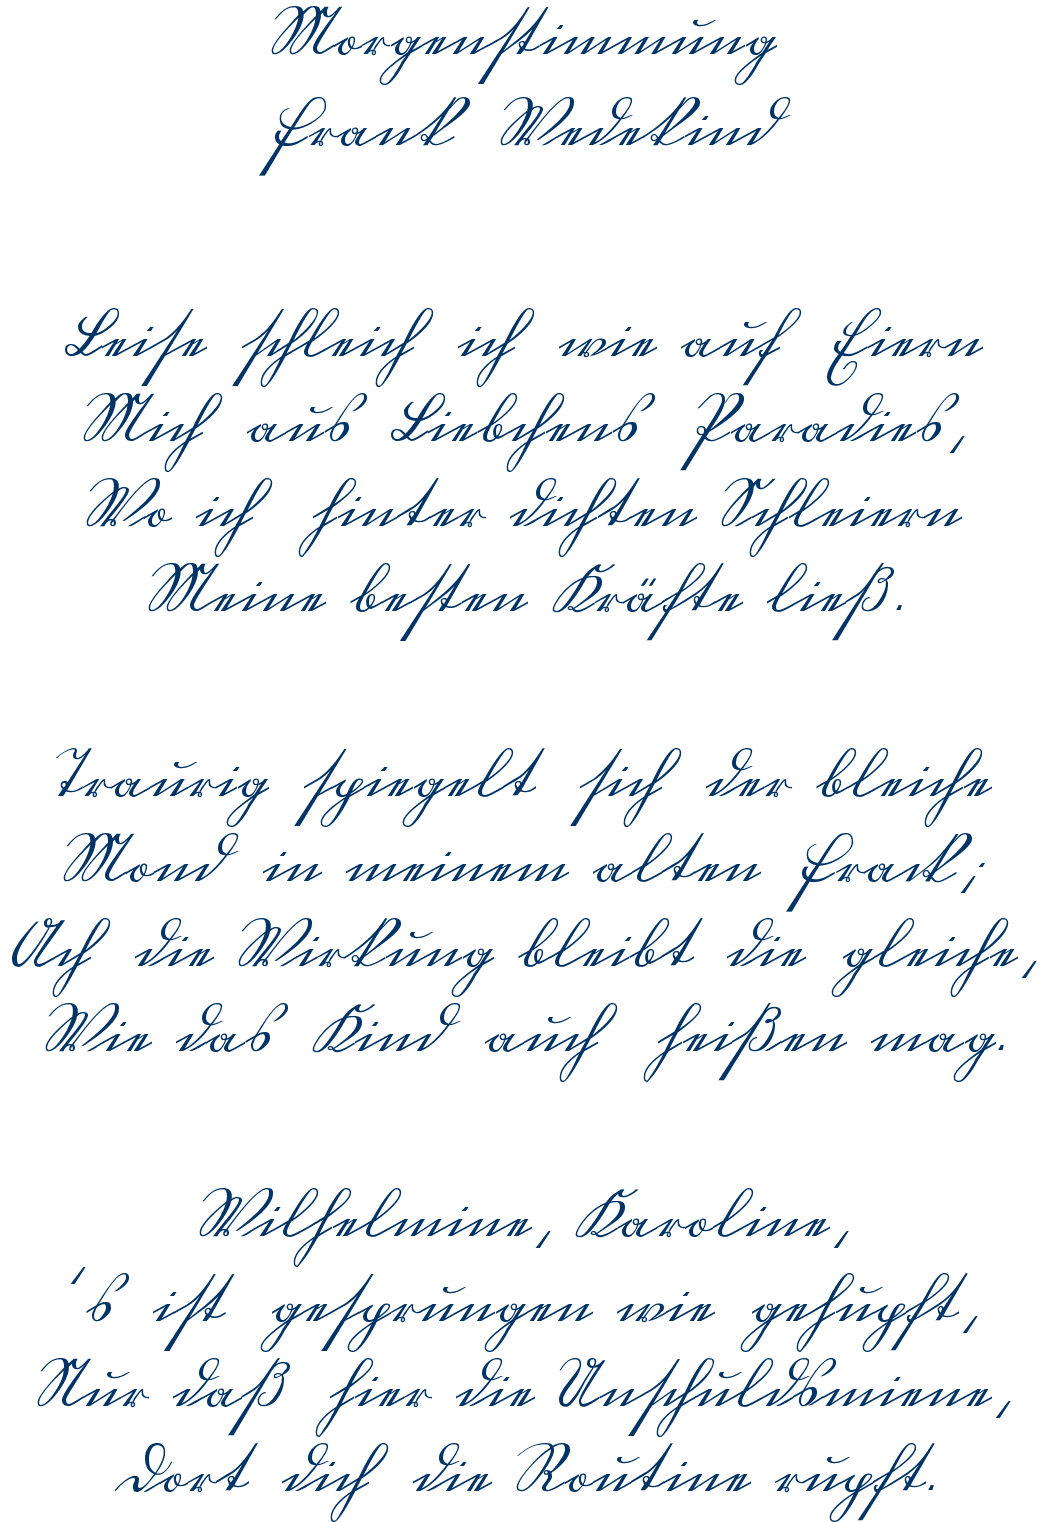 Morgenstimmung
Frank Wedekind
Leise schleich ich wie auf Eiern
Mich aus Liebchens Paradies,
Wo ich hinter dichten Schleiern
Meine besten Kräfte ließ.
Traurig spiegelt sich der bleiche
Mond in meinem alten Frack;
Ach die Wirkung bleibt die gleiche,
Wie das Kind auch heißen mag.
Wilhelmine, Karoline,
's ist gesprungen wie gehupft,
Nur daß hier die Unschuldsmiene,
Dort dich die Routine rupft.